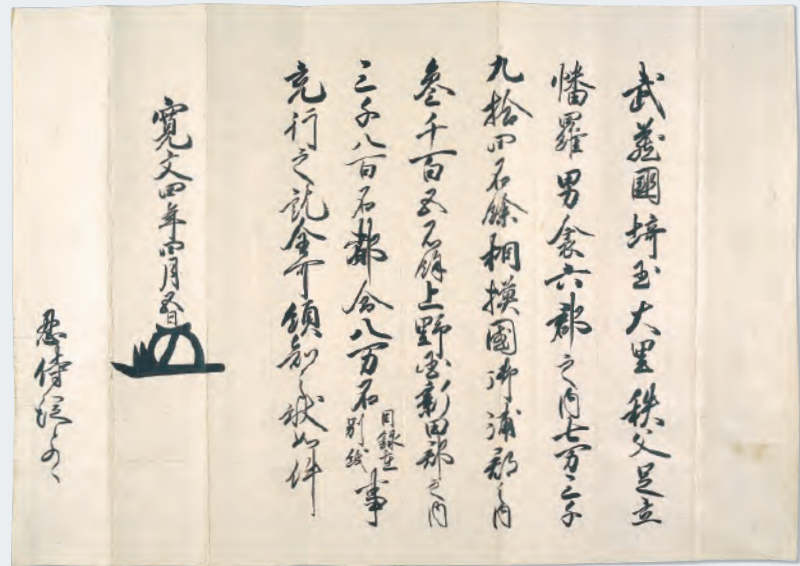 武蔵國埼玉大里秩父足立
幡羅男衾六郡之内七万三千
九拾四石餘相模國御浦郡之内
叄千百五石餘上野国新田郡之内
三千八百石都合八万石目録在別紙事
充行之訖全可領知之状如件
寛文四年四月五日
忍侍従との